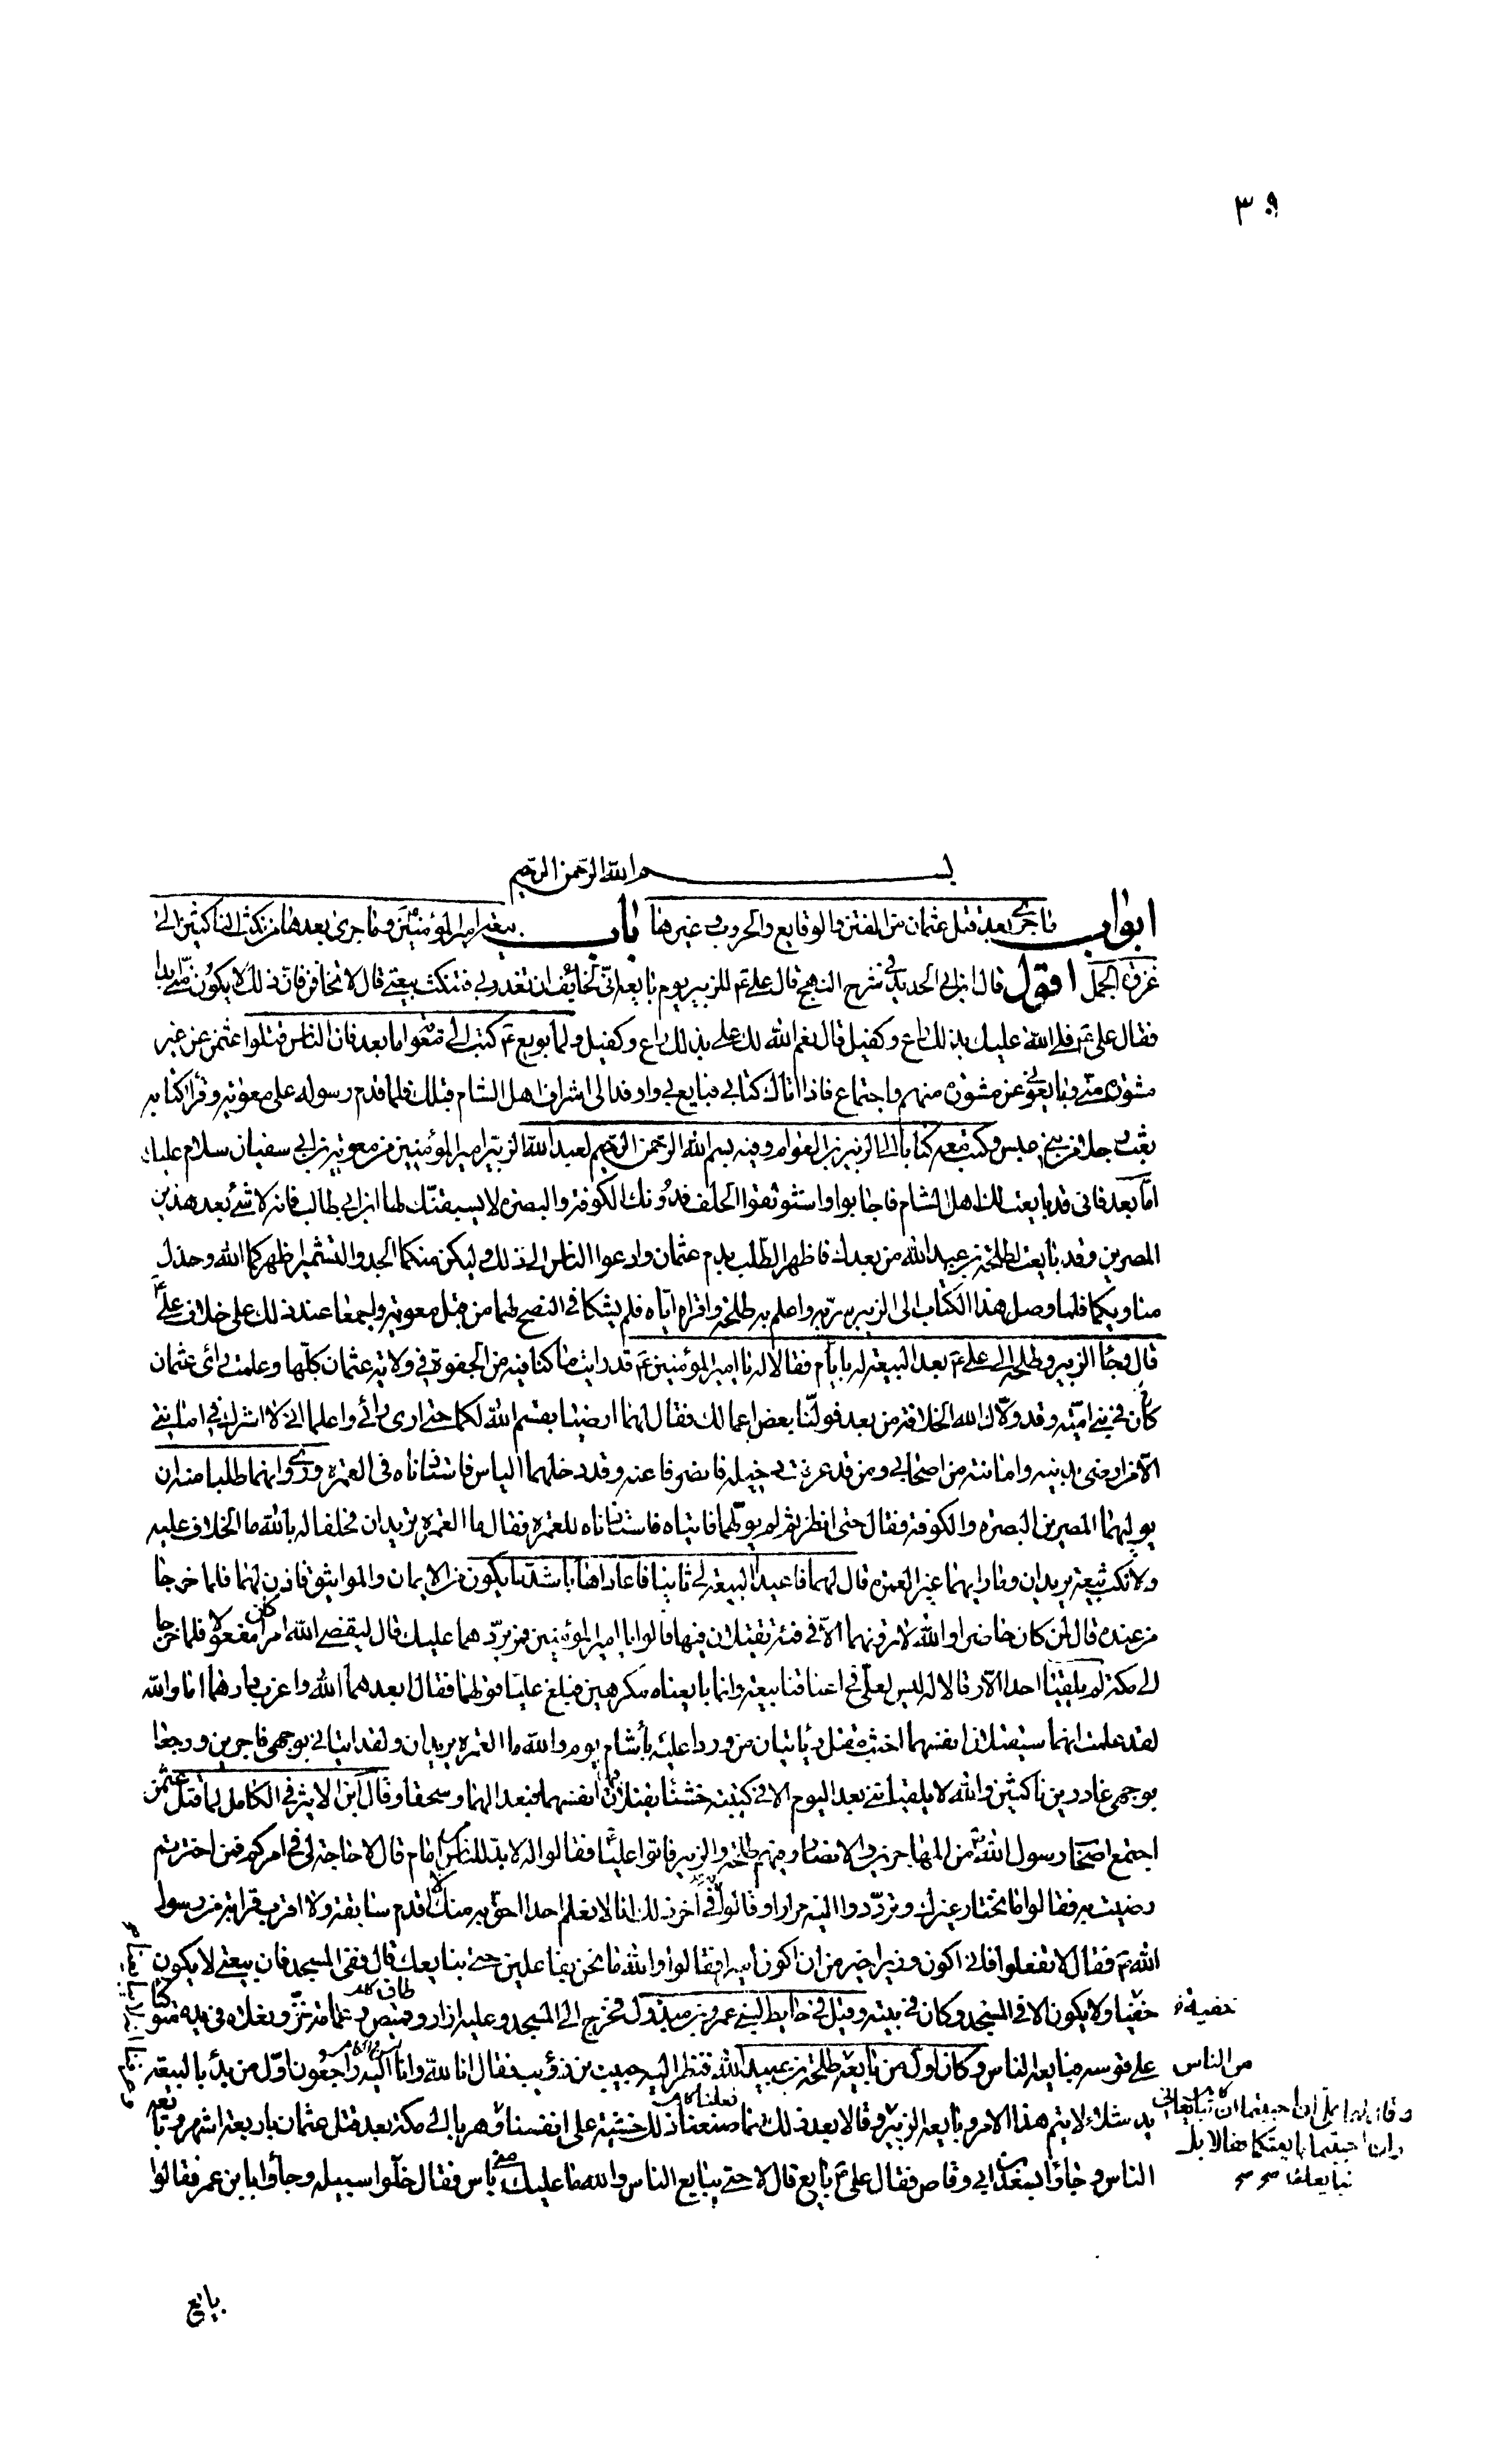 ٣٠٩
بسم الله الرحمن الرحيم
ابواب ما جرى بعد قتل عثمان من الفتن والوقايع والحروب وغيرها باب بيعة امير المؤمنين وما جرى بعدها من نكث الناكثين الى
غزوة الجمل اقول قال ابن ابي الحديد في شرح النهج قال علي ع للزبير يوم بايعه اني لخائف ان تغدر بي فتنكث بيعتي قال لا تخافن فان ذلك لا يكون مني ابدا
فقال علي ع فلي الله عليك بذلك راع وكفيل قال نعم الله لك علي بذلك راع وكفيل ولما بويع ع كتب الى معوية اما بعد فان الناس قتلوا عثمن عن غير
مشورة مني وبايعوني عن مشورة منهم واجتماع فاذا اتاك كتابي فبايع لي واوفد الي اشراف اهل الشام قبلك فلما قدم رسوله على معوية وقرأ كتابه
بعث رجلا من بني عبس وكتب معه كتابا الى الزبير بن العوام وفيه بسم الله الرحمن الرحيم لعبد الله الزبير امير المؤمنين من معوية بن ابي سفيان سلام عليك
اما بعد فاني قد بايعت لك اهل الشام فاجابوا واستوثقوا الحلف فدونك الكوفة والبصرة لا يسبقنك لها ابن ابي طالب فانه لا شئ بعد هذين
المصرين وقد بايعت لطلحة بن عبيد الله من بعدك فاظهرا الطلب بدم عثمان وادعوا الناس الى ذلك وليكن منكما الجد والتشمير اظهركما الله وخذل
مناويكما فلما وصل هذا الكتاب الى الزبير سر به واعلم به طلحة واقراه اياه فلم يشكا في النصح لهما من قبل معوية واجمعا عند ذلك على خلاف علي ع
قال وجاء الزبير وطلحة الى علي ع بعد البيعة له بايام فقالا له يا امير المؤمنين ع قد رايت ما كنا فيه من الجفوة في ولاية عثمان كلها وعلمت راى عثمان
كان في بني امية وقد ولاك الله الخلافة من بعده فولنا بعض اعمالك فقال لهما ارضيا بقسم الله لكما حتى ارى رائي واعلما اني لا اشرك في امانتي
الا من ارضى بدينه وامانته من اصحابي ومن قد عرفت دخيله فانصرفا عنه وقد دخلهما الياس فاستاذناه في العمرة وروى انهما طلبا منه ان
يوليهما المصرين البصرة والكوفة فقال حتى انظر ثم لم يولهما فاتياه فاستاذناه للعمرة فقال ما العمرة تريدان فحلفا له بالله ما الخلاف عليه
ولا نكث بيعته يريدان وما رايهما غير العمرة قال لهما فاعيدا البيعة لي ثانيا فاعاداها باشد ما يكون من الايمان والمواثيق فاذن لهما فلما خرجا
من عنده قال لمن كان حاضرا والله لا ترونهما الا في فتنة تقتتلان فيها قالوا يا امير المؤمنين فمر بردهما عليك قال ليقضي الله امرا كان مفعولا فلما خرجا
الى مكة لم يلقيا احدا الا وقالا له ليس لعلي في اعناقنا بيعة وانما بايعناه مكرهين فبلغ عليا قولهما فقال ابعدهما الله واغرب دارهما اما والله
لقد علمت انهما سيقتلان انفسهما اخبث مقتل وياتيان من وردا عليه باشام يوم والله ما العمرة يريدان ولقد اتياني بوجهي فاجرين ورجعا
بوجهي غادرين ناكثين والله لا يلقيانني بعد اليوم الا في كتيبة خشناء يقتلان فيها انفسهما فبعدا لهما وسحقا وقال ابن الاثير في الكامل لما قتل عثمن
اجتمع اصحاب رسول الله من المهاجرين والانصار وفيهم طلحة والزبير فاتوا عليا فقالوا له لا بد للناس من امام قال لا حاجة لي في امركم فمن اخترتم
رضيت به فقالوا ما نختار غيرك وترددوا اليه مرارا وقالوا في آخر ذلك انا لا نعلم احدا احق به منك لا اقدم سابقة ولا اقرب قرابة من رسول
الله ص فقال لا تفعلوا فاني اكون وزيرا خير من ان اكون اميرا فقالوا والله ما نحن بفاعلين حتى نبايعك قال ففي المسجد فان بيعتي لا يكون
خفيا ولا يكون الا في المسجد وكان في بيته وقيل في حايط لبني عمرو بن مبذول فخرج الى المسجد وعليه ازار وقميص وعمامة خز ونعلاه في يده متوكئا
على قوسه فبايعه الناس وكان اول من بايعه طلحة بن عبيد الله فنظر اليه حبيب بن ذؤيب فقال انا لله وانا اليه راجعون اول من بدأ بالبيعة
يد شلاء لا يتم هذا الامر وبايعه الزبير وقالا بعد ذلك انما صنعنا ذلك خشية على انفسنا وهربا الى مكة بعد قتل عثمان باربعة اشهر وبايعه
الناس وجاؤا بسعد بن ابي وقاص فقال علي ع بايع قال لا حتى يبايع الناس والله ما عليك مني باس فقال خلوا سبيله وجاؤا بابن عمر فقالوا
خفية
من الناس
وقال لهما علي ان احببتما ان تبايعاني
وان احببتما بايعتكما فقالا بل
نبايعك صح
بايع